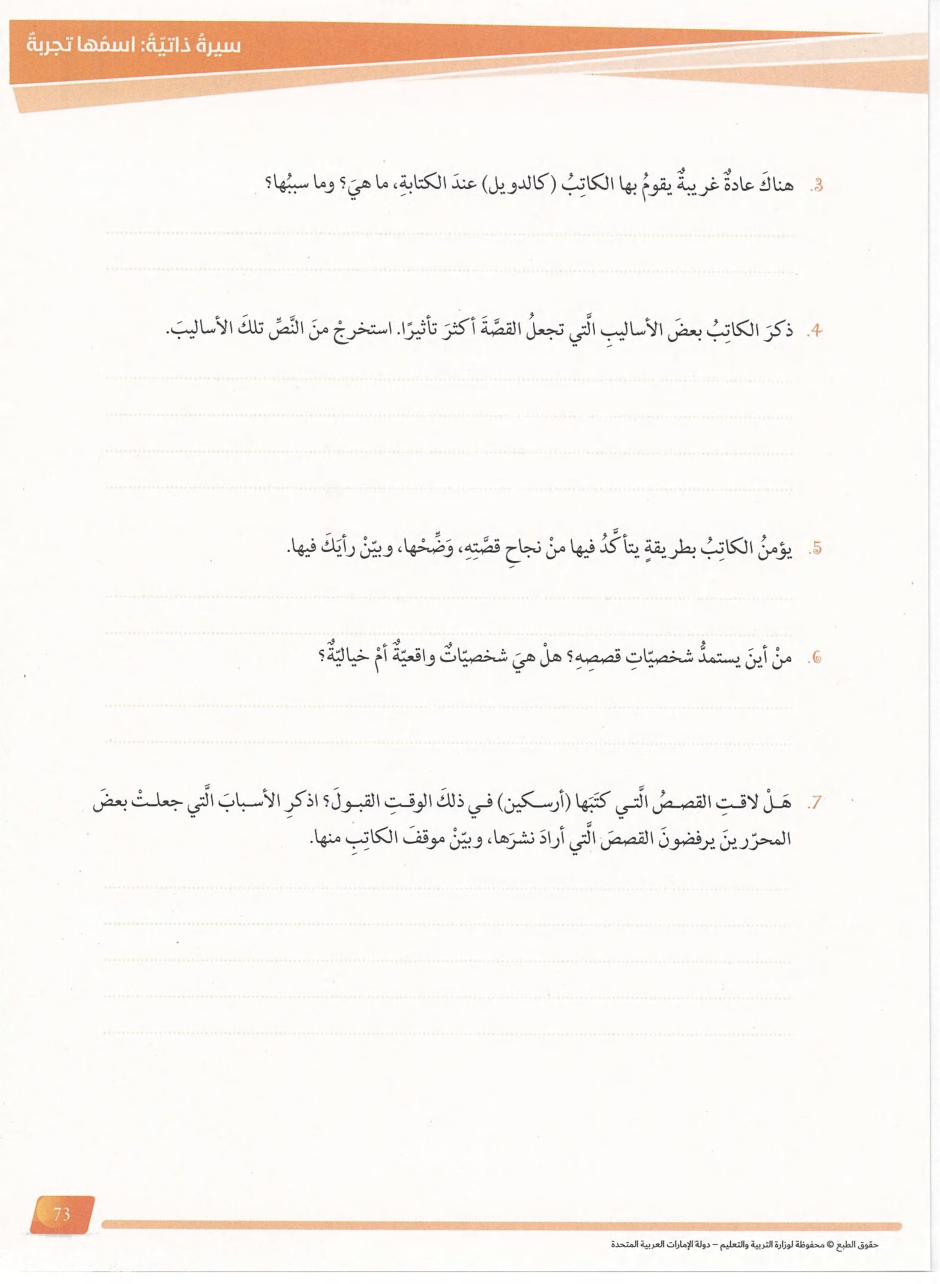 سيرةُ ذاتيّةُ: اسمُها تجربةُ
3. هناكَ عادةٌ غريبةٌ يقومُ بها الكاتِبُ (كالدويل) عندَ الكتابةِ، ما هيَ؟ وما سببُها؟
4. ذكرَ الكاتِبُ بعضَ الأساليبِ الَّتي تجعلُ القصَّةَ أكثرَ تأثيرًا. استخرجْ منَ النَّصِّ تلكَ الأساليبَ.
5. يؤمنُ الكاتِبُ بطريقةٍ يتأكَّدُ فيها منْ نجاحِ قصَّتِهِ، وَضِّحْها، وبيّنْ رأيَكَ فيها.
6. منْ أينَ يستمدُّ شخصيّاتِ قصصِهِ؟ هلْ هيَ شخصيّاتٌ واقعيّةٌ أمْ خياليّةٌ؟
7. هَـلْ لاقـتِ القصـصُ الَّتـي كتَبَها (أرسـكين) فـي ذلكَ الوقـتِ القبـولَ؟ اذكرِ الأسـبابَ الَّتي جعلـتْ بعضَ
المحرّرينَ يرفضونَ القصصَ الَّتي أرادَ نشرَها، وبيّنْ موقفَ الكاتِبِ منها.
73
حقوق الطبع © محفوظة لوزارة التربية والتعليم – دولة الإمارات العربية المتحدة